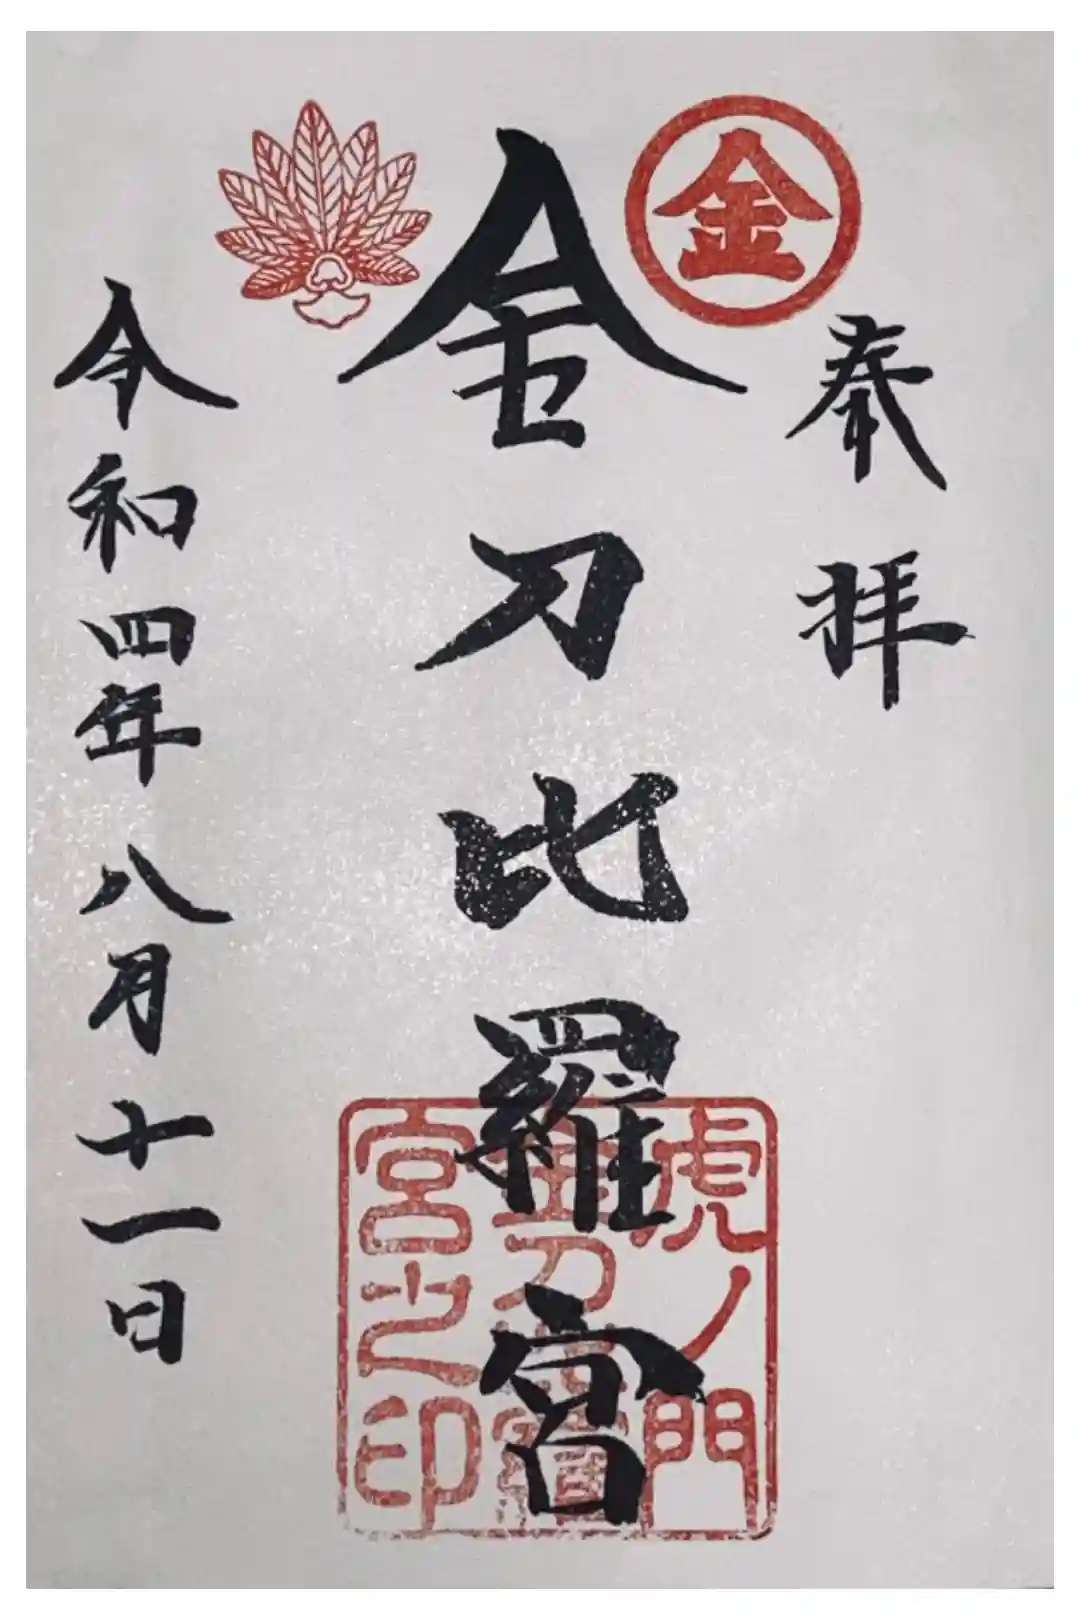 金
奉拝
金刀比羅宮
令和四年八月十一日
虎ノ門
金刀比羅
宮之印